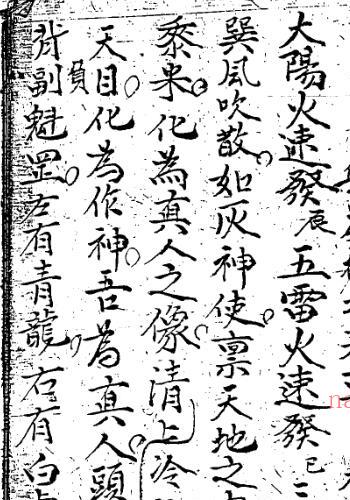 大陽火速發辰五雷火速發巳二
巽風吹散。如灰神使。禀天地之
黍米。化為真人之像。清上冷
天目化為作神。吾為真人。頭
負
背副魁罡。左有青龍。右有白
na